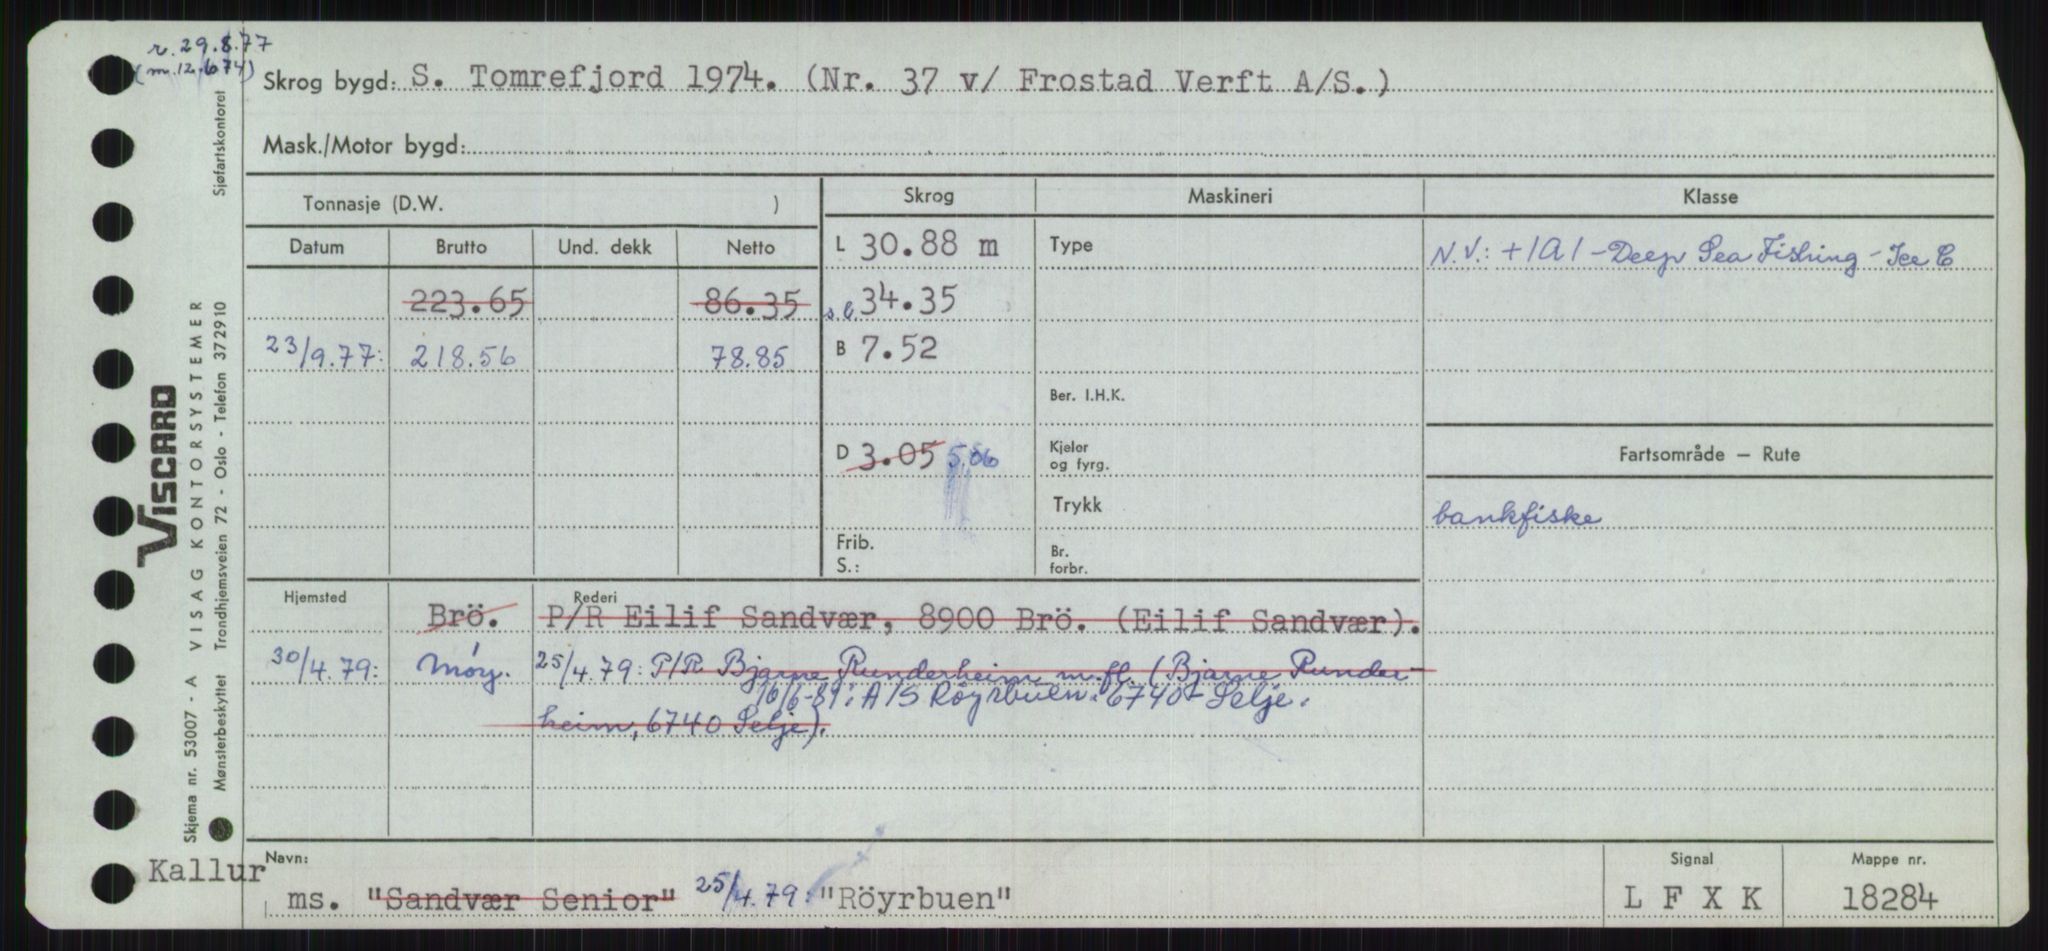 r. 29.8.77
(m. 12.6.74)
Skrog bygd: S. Tomrefjord 1974. (Nr. 37 v/ Frostad Verft A/S.)
Mask./Motor bygd:
Tonnasje (D.W. )
Skrog Maskineri Klasse
Datum Brutto Und. dekk Netto
L 30.88 m Type N.V.: +1A1 - Deep Sea Fishing - Ice C
223.65 86.35 s.b. 34.35
23/9.77: 218.56 78.85 B 7.52
Ber. I.H.K.
D 3.05 5,06 Kjeler og fyrg. Fartsområde — Rute
Trykk bankfiske
Frib.
S.:
Br. forbr.
Hjemsted Rederi
Brö. P/R Eilif Sandvær, 8900 Brö. (Eilif Sandvær).
30/4.79: 25/4.79: P/R Bjarne Runderheim m.fl. (Bjarne Runder-
16/6-89: A/S Röyrbuen. 6740 - Selje.
heim, 6740 Selje).
Navn:
Kallur
ms. "Sandvær Senior" 25/4.79: "Röyrbuen"
Signal
L F X K
Mappe nr.
18284
Sjøfartskontoret
VISCARD
VISAG KONTORSYSTEMER
Skjema nr. 53007 - A
Mønsterbeskyttet Trondhjemsveien 72 - Oslo - Telefon 372910